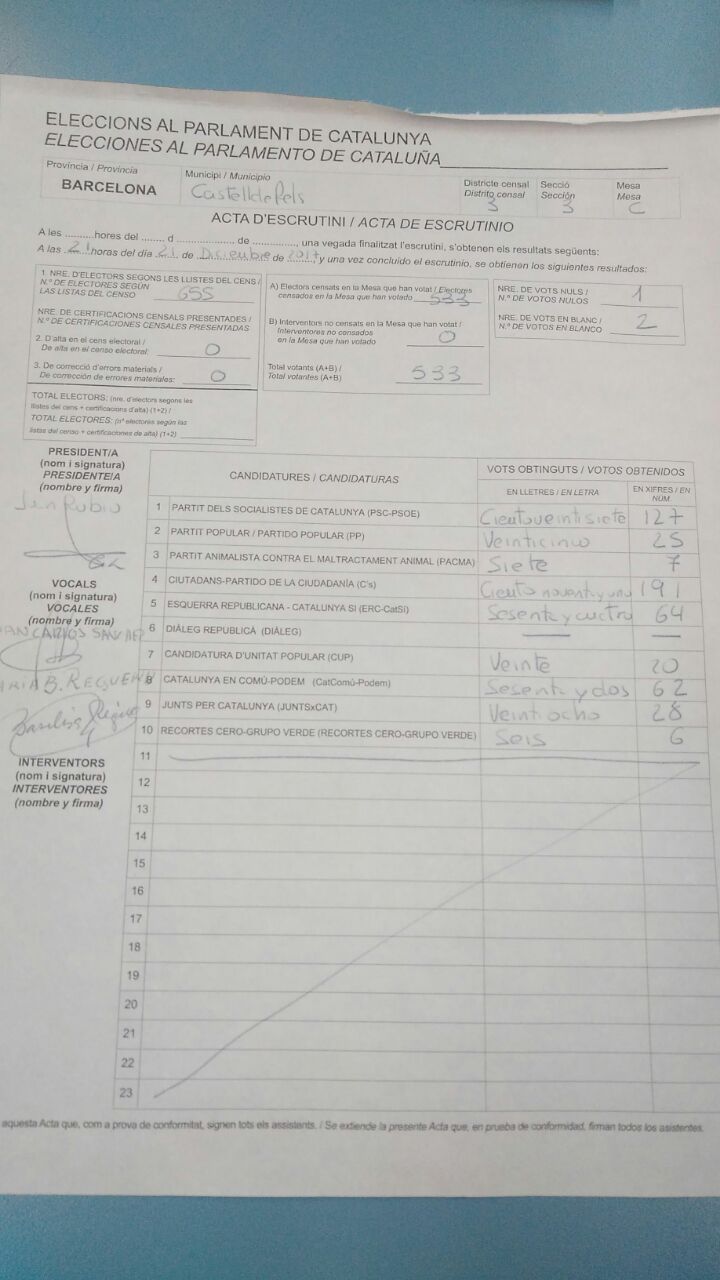 ELECCIONS AL PARLAMENT DE CATALUNYA
ELECCIONES AL PARLAMENTO DE CATALUÑA
Província / Provincia
BARCELONA
Municipi / Municipio
Castelldefels
Districte censal
Distrito censal
3
Secció
Sección
3
Mesa
Mesa
C
ACTA D'ESCRUTINI / ACTA DE ESCRUTINIO
A les ..........hores del ........ d ..................... de .............., una vegada finalitzat l'escrutini, s'obtenen els resultats següents:
A las 21 horas del día 21 de Diciembre de 2017, y una vez concluido el escrutinio, se obtienen los siguientes resultados:
1. NRE. D'ELECTORS SEGONS LES LLISTES DEL CENS /
N.º DE ELECTORES SEGÚN
LAS LISTAS DEL CENSO 655
NRE. DE CERTIFICACIONS CENSALS PRESENTADES /
N.º DE CERTIFICACIONES CENSALES PRESENTADAS
2. D'alta en el cens electoral /
De alta en el censo electoral: 0
3. De correcció d'errors materials /
De corrección de errores materiales: 0
TOTAL ELECTORS: (nre. d'electors segons les
llistes del cens + certificacions d'alta) (1+2) /
TOTAL ELECTORES: (nº electores según las
listas del censo + certificaciones de alta) (1+2)
A) Electors censats en la Mesa que han votat / Electores
censados en la Mesa que han votado 533
B) Interventors no censats en la Mesa que han votat /
Interventores no censados
en la Mesa que han votado 0
Total votants (A+B) /
Total votantes (A+B) 533
NRE. DE VOTS NULS /
N.º DE VOTOS NULOS 1
NRE. DE VOTS EN BLANC /
N.º DE VOTOS EN BLANCO 2
PRESIDENT/A
(nom i signatura)
PRESIDENTE/A
(nombre y firma)
Rubio
VOCALS
(nom i signatura)
VOCALES
(nombre y firma)
CARLOS
B.
INTERVENTORS
(nom i signatura)
INTERVENTORES
(nombre y firma)
CANDIDATURES / CANDIDATURAS
VOTS OBTINGUTS / VOTOS OBTENIDOS
EN LLETRES / EN LETRA
EN XIFRES / EN NÚM.
1 PARTIT DELS SOCIALISTES DE CATALUNYA (PSC-PSOE) Cientoveintisiete 127
2 PARTIT POPULAR / PARTIDO POPULAR (PP) Veinticinco 25
3 PARTIT ANIMALISTA CONTRA EL MALTRACTAMENT ANIMAL (PACMA) Siete 7
4 CIUTADANS-PARTIDO DE LA CIUDADANÍA (C's) Ciento noventa y uno 191
5 ESQUERRA REPUBLICANA - CATALUNYA SÍ (ERC-CatSí) Sesenta y cuatro 64
6 DIÀLEG REPUBLICÀ (DIÀLEG) — —
7 CANDIDATURA D'UNITAT POPULAR (CUP) Veinte 20
8 CATALUNYA EN COMÚ-PODEM (CatComú-Podem) Sesenta y dos 62
9 JUNTS PER CATALUNYA (JUNTSxCAT) Veintiocho 28
10 RECORTES CERO-GRUPO VERDE (RECORTES CERO-GRUPO VERDE) Seis 6
11
12
13
14
15
16
17
18
19
20
21
22
23
aquesta Acta que, com a prova de conformitat, signen tots els assistents. / Se extiende la presente Acta que, en prueba de conformidad, firman todos los asistentes.